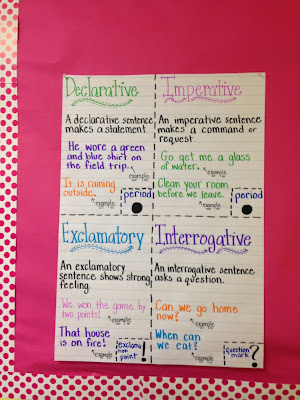 Declarative
A declarative sentence
makes a statement.
He wore a green
and blue shirt on
the field trip.
example
It is raining
outside.
example
period
Imperative
An imperative sentence
makes a command or
request.
Go get me a glass
of water.
example
Clean your room
before we leave.
example
period
Exclamatory
An exclamatory
sentence shows strong
feeling.
We won the game by
two points!
example
That house
is on fire!
example
exclama
tion
point
!
Interrogative
An interrogative sentence
asks a question.
Can we go home
now?
example
When can
we eat?
example
question
mark
?